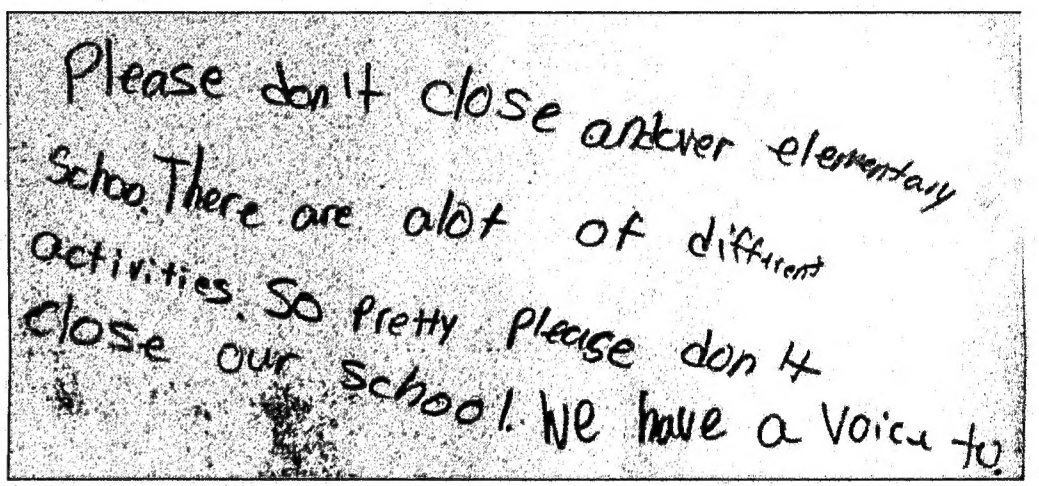 Please don't close andover elementary
Schoo. There are alot of different
activities. So Pretty Please don't
close our school. We have a voice to.